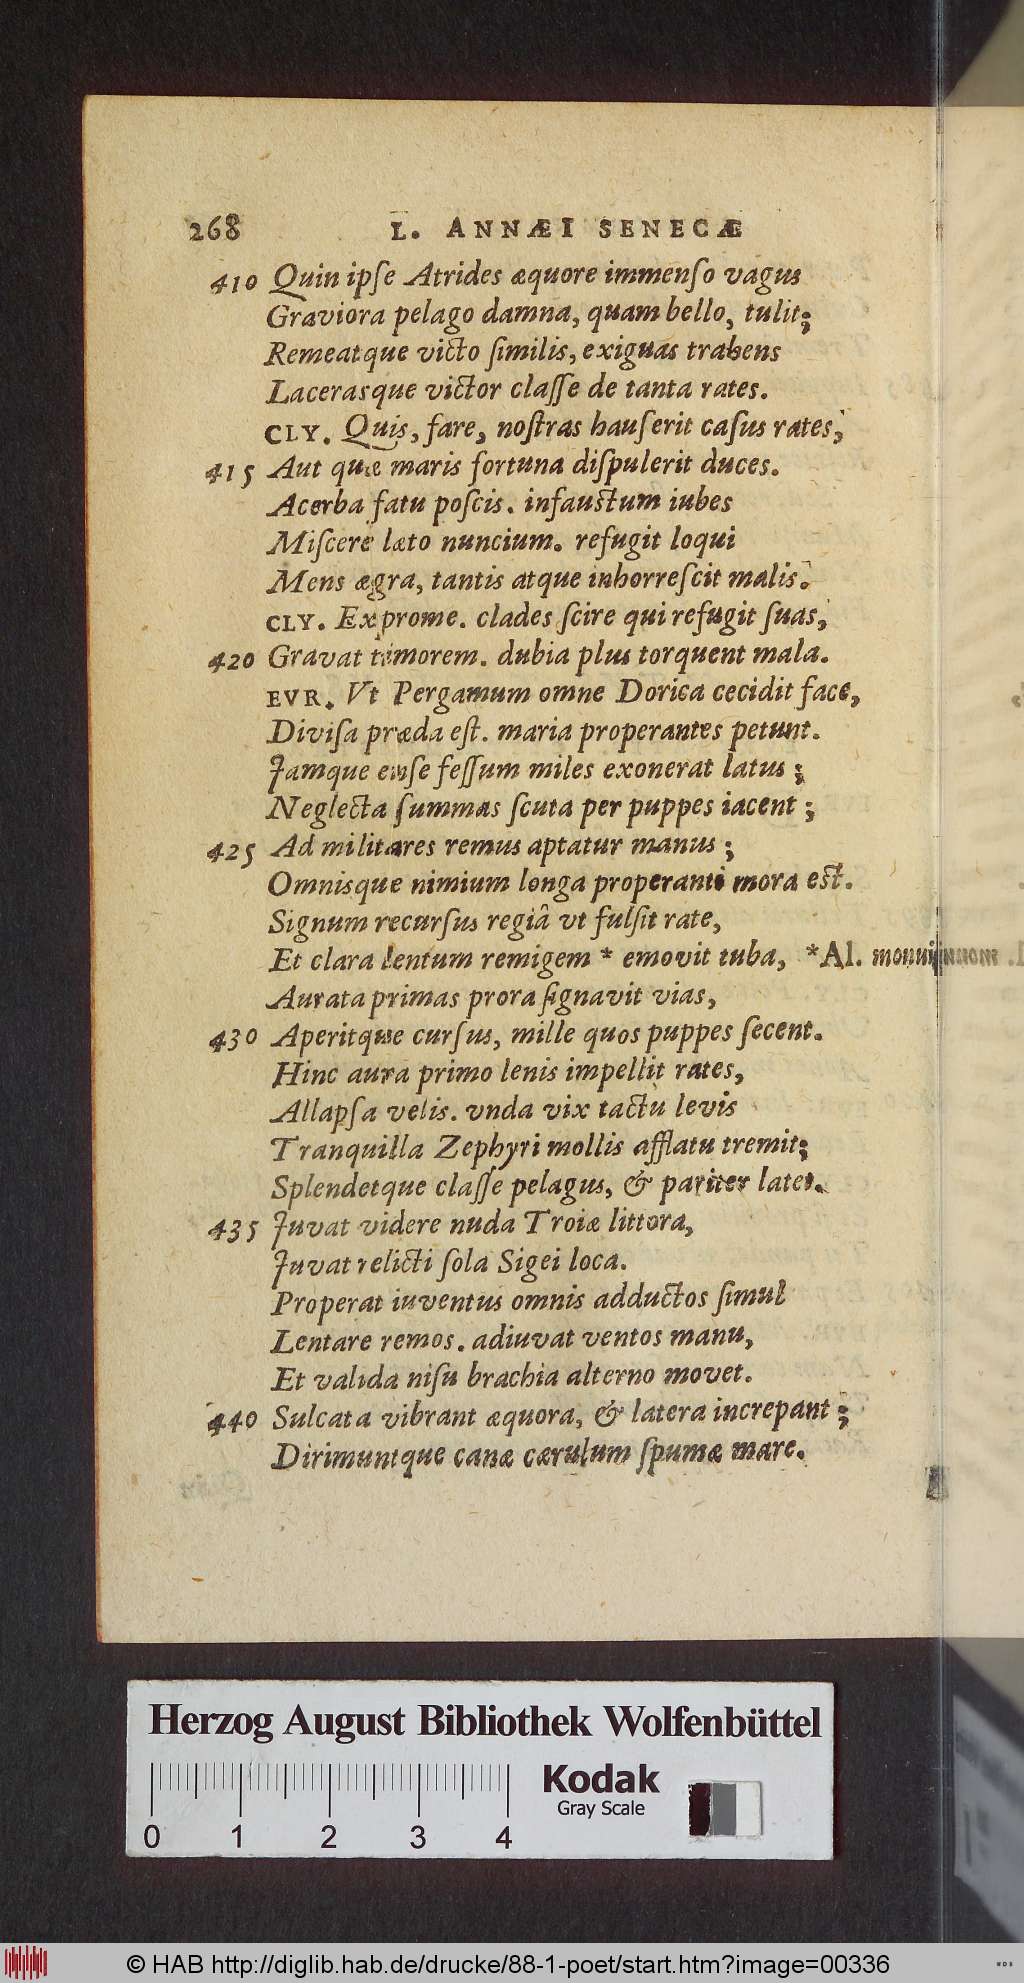 268 L. ANNÆI SENECÆ
410 Quin ipſe Atrides æquore immenſo vagus
Graviora pelago damna, quam bello, tulit;
Remeatque victo ſimilis, exiguas trahens
Lacerasque victor claſſe de tanta rates.
CLY. Quis, fare, noſtras hauſerit caſus rates,
415 Aut quæ maris fortuna diſpulerit duces.
Acerba fatu poſcis. infauſtum iubes
Miſcere læto nuncium. refugit loqui
Mens ægra, tantis atque inhorreſcit malis.
CLY. Exprome. clades ſcire qui refugit ſuas,
420 Gravat timorem. dubia plus torquent mala.
EVR. Vt Pergamum omne Dorica cecidit face,
Diviſa præda eſt. maria properantes petunt.
Jamque enſe feſſum miles exonerat latus;
Neglecta ſummas ſcuta per puppes iacent;
425 Ad militares remus aptatur manus;
Omnisque nimium longa properanti mora eſt.
Signum recurſus regiâ vt fulſit rate,
Et clara lentum remigem * emovit tuba, *Al. monuit
Aurata primas prora ſignavit vias,
430 Aperitque curſus, mille quos puppes ſecent.
Hinc aura primo lenis impellit rates,
Allapſa velis. vnda vix tactu levis
Tranquilla Zephyri mollis afflatu tremit;
Splendetque claſſe pelagus, & pariter latet.
435 Juvat videre nuda Troiæ littora,
Juvat relicti ſola Sigei loca.
Properat iuventus omnis adductos ſimul
Lentare remos. adiuvat ventos manu,
Et valida niſu brachia alterno movet.
440 Sulcata vibrant æquora, & latera increpant;
Dirimuntque canæ cærulum ſpumæ mare.
Herzog August Bibliothek Wolfenbüttel
Kodak
Gray Scale
0 1 2 3 4
© HAB http://diglib.hab.de/drucke/88-1-poet/start.htm?image=00336